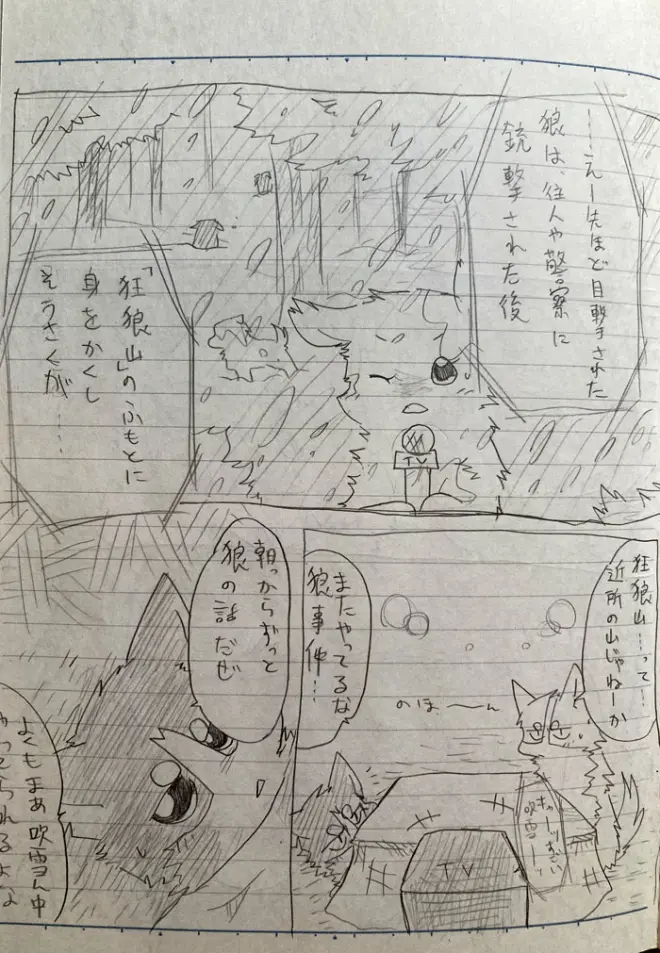 …えー先ほど目撃された
狼は、住人や警察に
銃撃された後
「狂狼山」のふもとに
身をかくし
そうさくが……
TV
狂狼山…って…
近所の山じゃねーか
またやってるな
狼事件…
のほ〜〜ん
吹雪ー!
TV
朝っからずっと
狼の話だぜ
よくもまあ吹雪ん中
やってられるよな